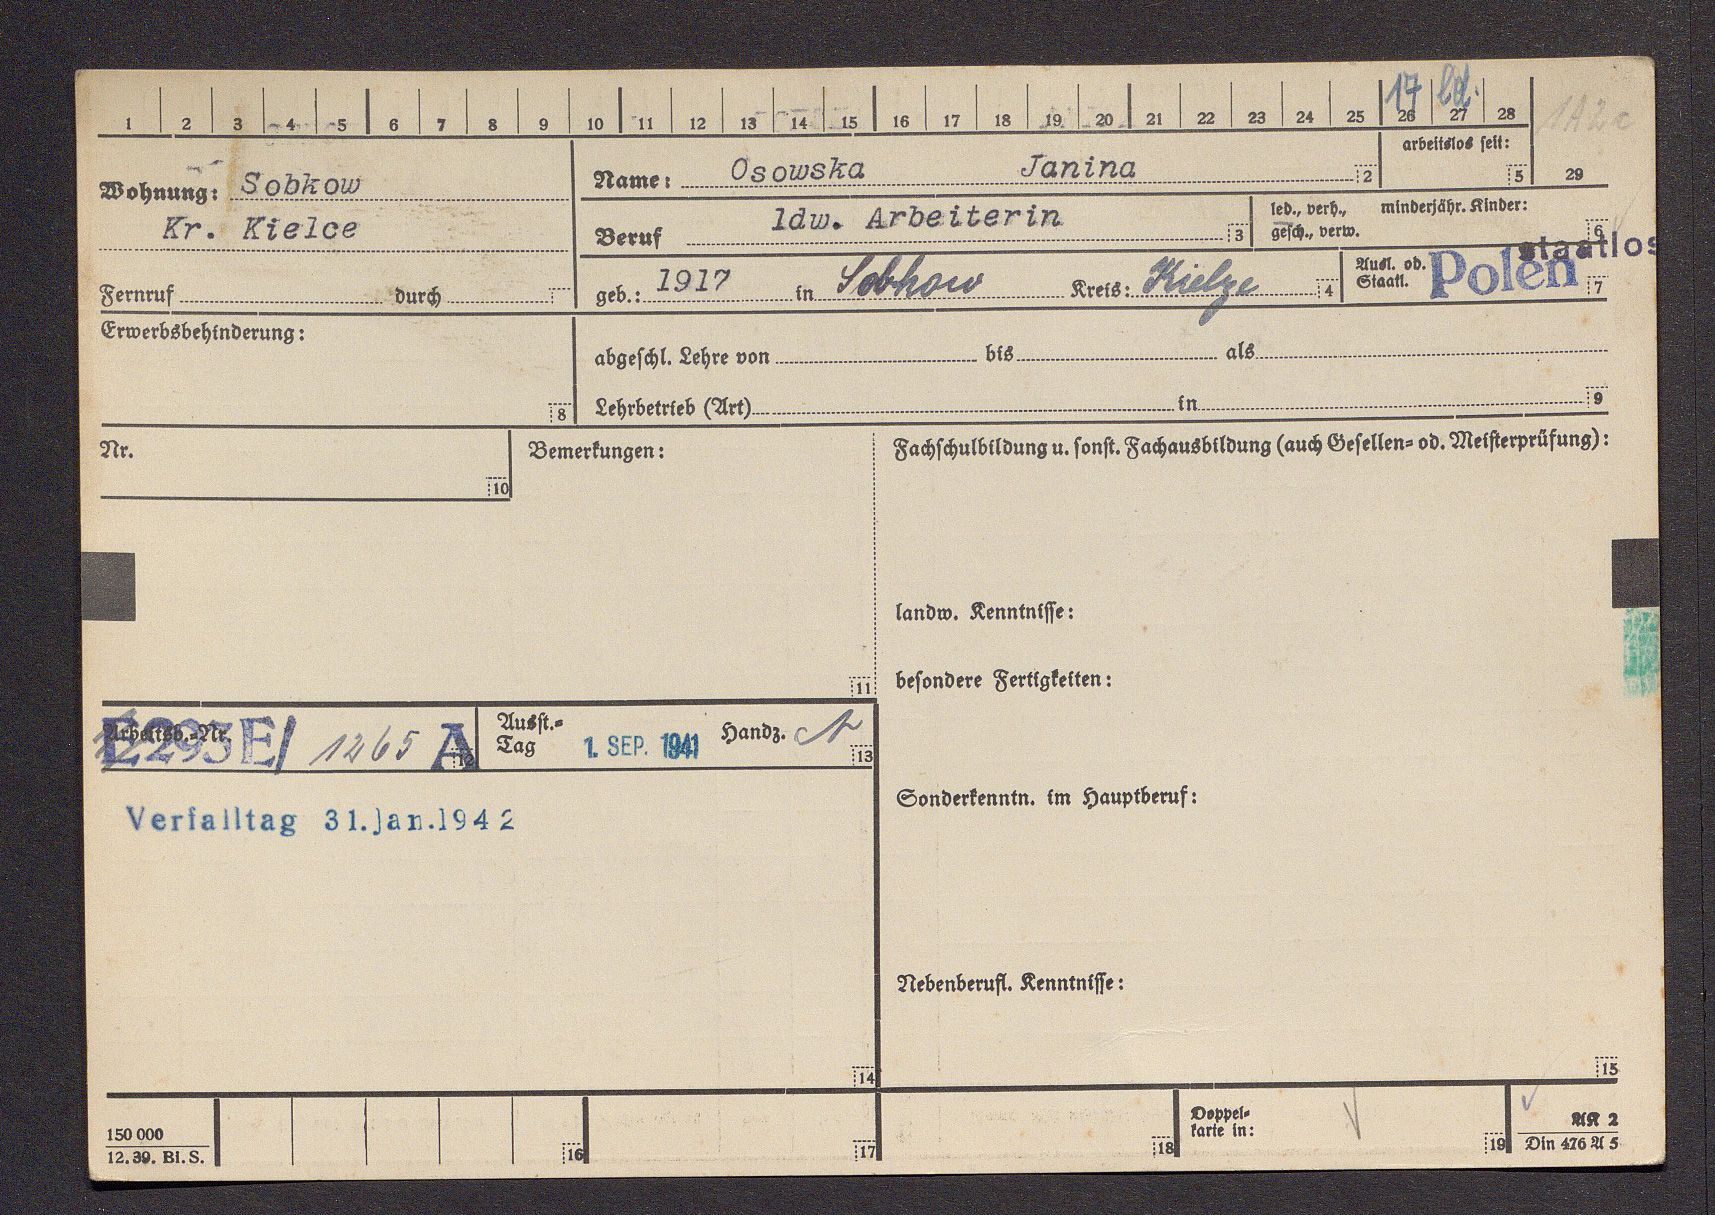 17 ld.
1 2 3 4 5 6 7 8 9 10 11 12 13 14 15 16 17 18 19 20 21 22 23 24 25 26 27 28 1A2c
Wohnung: Sobkow
Kr. Kielce
Fernruf durch
Name: Osowska Janina 2
arbeitslos seit: 5 29
Beruf ldw. Arbeiterin 3
led., verh., minderjähr. Kinder:
gesch., verw. 6
geb.: 1917 in Sobkow Kreis: Kielze 4
Ausl. od.
Staatl. Polen staatlos 7
Erwerbsbehinderung: 8
abgeschl. Lehre von bis als
Lehrbetrieb (Art) in 9
Nr. 10
Bemerkungen: 11
Fachschulbildung u. sonst. Fachausbildung (auch Gesellen= od. Meisterprüfung):
landw. Kenntnisse:
besondere Fertigkeiten:
Arbeitsb.=Nr. E293E/ 1265 A 12
Ausst.=
Tag 1. SEP. 1941 Handz. 13
Verfalltag 31.Jan.1942
14
Sonderkenntn. im Hauptberuf:
Nebenberufl. Kenntnisse:
15
150 000
12. 39. Bl. S.
16 17 18
Doppel=
karte in: 19
AK 2
Din 476 A 5